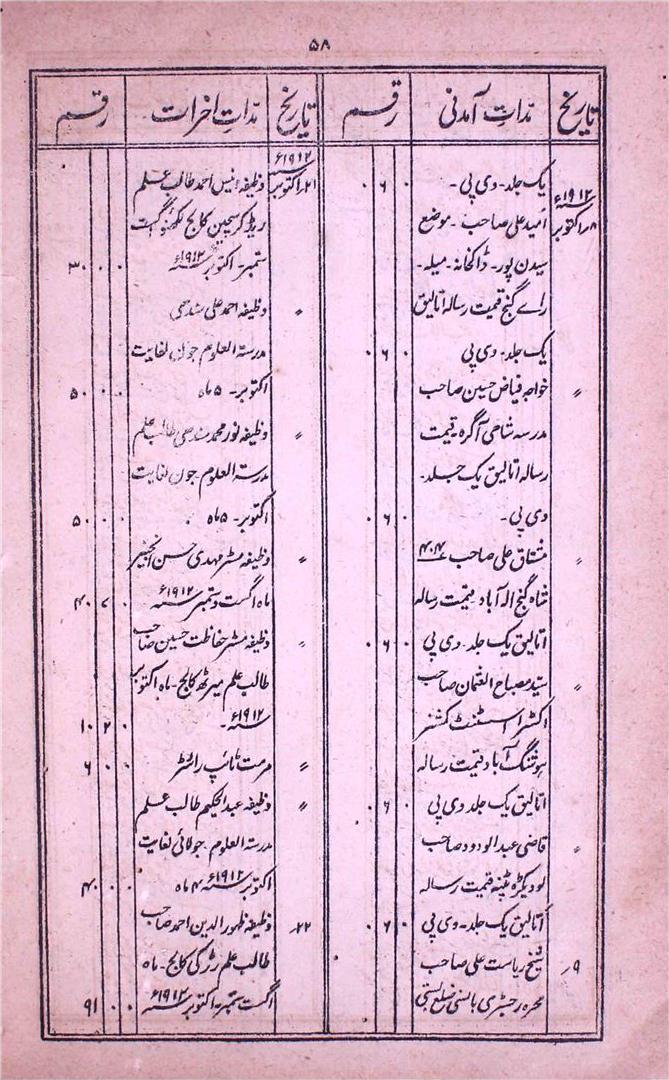 ۵۸
تاریخ
مدّاتِ آمدنی
رقم
۱۹۱۲ء
۸؍اکتوبر
یک جلد۔ وی پی۔
۰ ۶ ۰
اُمید علی صاحب۔ موضع
سیدن پور۔ ڈاکخانہ۔ میلہ۔
رائے گنج قیمت رسالہ اتالیق
یک جلد۔ وی پی
۰ ۶ ۰
〃
خواجہ فیاض حسین صاحب
مدرسہ شاہی آگرہ۔ قیمت
رسالہ اتالیق یک جلد۔
وی پی۔
۰ ۶ ۰
〃
مشتاق علی صاحب ۴۰۴
شاہ گنج الہ آباد۔ قیمت رسالہ
اتالیق یک جلد۔ وی پی
۰ ۶ ۰
〃
سیّد مصباح العثمان صاحب
اکسٹرا اسسٹنٹ کمشنر
ہوشنگ آباد قیمت رسالہ
اتالیق یک جلد وی پی
۰ ۶ ۰
〃
قاضی عبد الودود صاحب
لودیکڑہ پٹنہ قیمت رسالہ
اتالیق یک جلد۔ وی پی
۰ ۶ ۰
۹؍
شیخ ریاست علی صاحب
محرر رجسٹری بانسی ضلع بستی
تاریخ
مدّاتِ اخراجات
رقم
۱۹۱۲ء
۲۱؍اکتوبر
وظیفہ انیس احمد طالب علم
ریڈ کرسچین کالج لکھنؤ اگست
ستمبر۔ اکتوبر ۱۹۱۲ء
۰ ۰ ۳۰
〃
وظیفہ احمد علی سندھی
مدرسۃ العلوم جون لغایت
اکتوبر۔ ۵ ماہ
۰ ۰ ۵۰
〃
وظیفہ نور محمد سندھی طالب علم
مدرسۃ العلوم۔ جون لغایت
اکتوبر۔ ۵ ماہ
۰ ۰ ۵۰
〃
وظیفہ مسٹر مہدی حسن انجنیر
ماہ اگست و ستمبر ۱۹۱۲ء
۰ ۷ ۴۰
〃
وظیفہ مسٹر حفاظت حسین صاحب
طالب علم میرٹھ کالج۔ ماہ اکتوبر
۱۹۱۲ء۔
۰ ۲ ۱۰
〃
مرمت ٹائپ رائٹر
۰ ۰ ۶
〃
وظیفہ عبد الحکیم طالب علم
مدرسۃ العلوم۔ جولائی لغایت
اکتوبر ۱۹۱۲ء ۴ ماہ
۰ ۰ ۴۰
۲۲؍
وظیفہ ظہور الدین احمد صاحب
طالب علم رڑکی کالج۔ ماہ
اگست ستمبر۔ اکتوبر ۱۹۱۲ء
۰ ۰ ۹۱